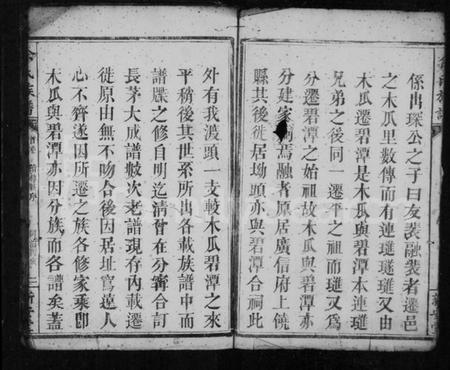 係出琛公之子曰友裴融裴者遷邑
之木瓜里數傳而有連璡璡又由
木瓜遷碧潭是木瓜與碧潭本連璡
兄弟之後同一遷平之祖而璡又為
分遷碧潭之始祖故木瓜與碧潭亦
分建家焉融者原居廣信府上饒
縣其後徙居坳頭亦與碧潭合祠此
外有我渡頭一支較木瓜碧潭之來
平稍後其世系所出各載族譜中而
譜牒之修自明迄清曾在分寧合訂
長茅大成譜數次老譜現存內載遷
徙原由無不吻合後因居址寫遠人
心不齊遂因所遷之族各修家乘即
木瓜與碧潭亦因分族而各譜矣蓋
氏族譜